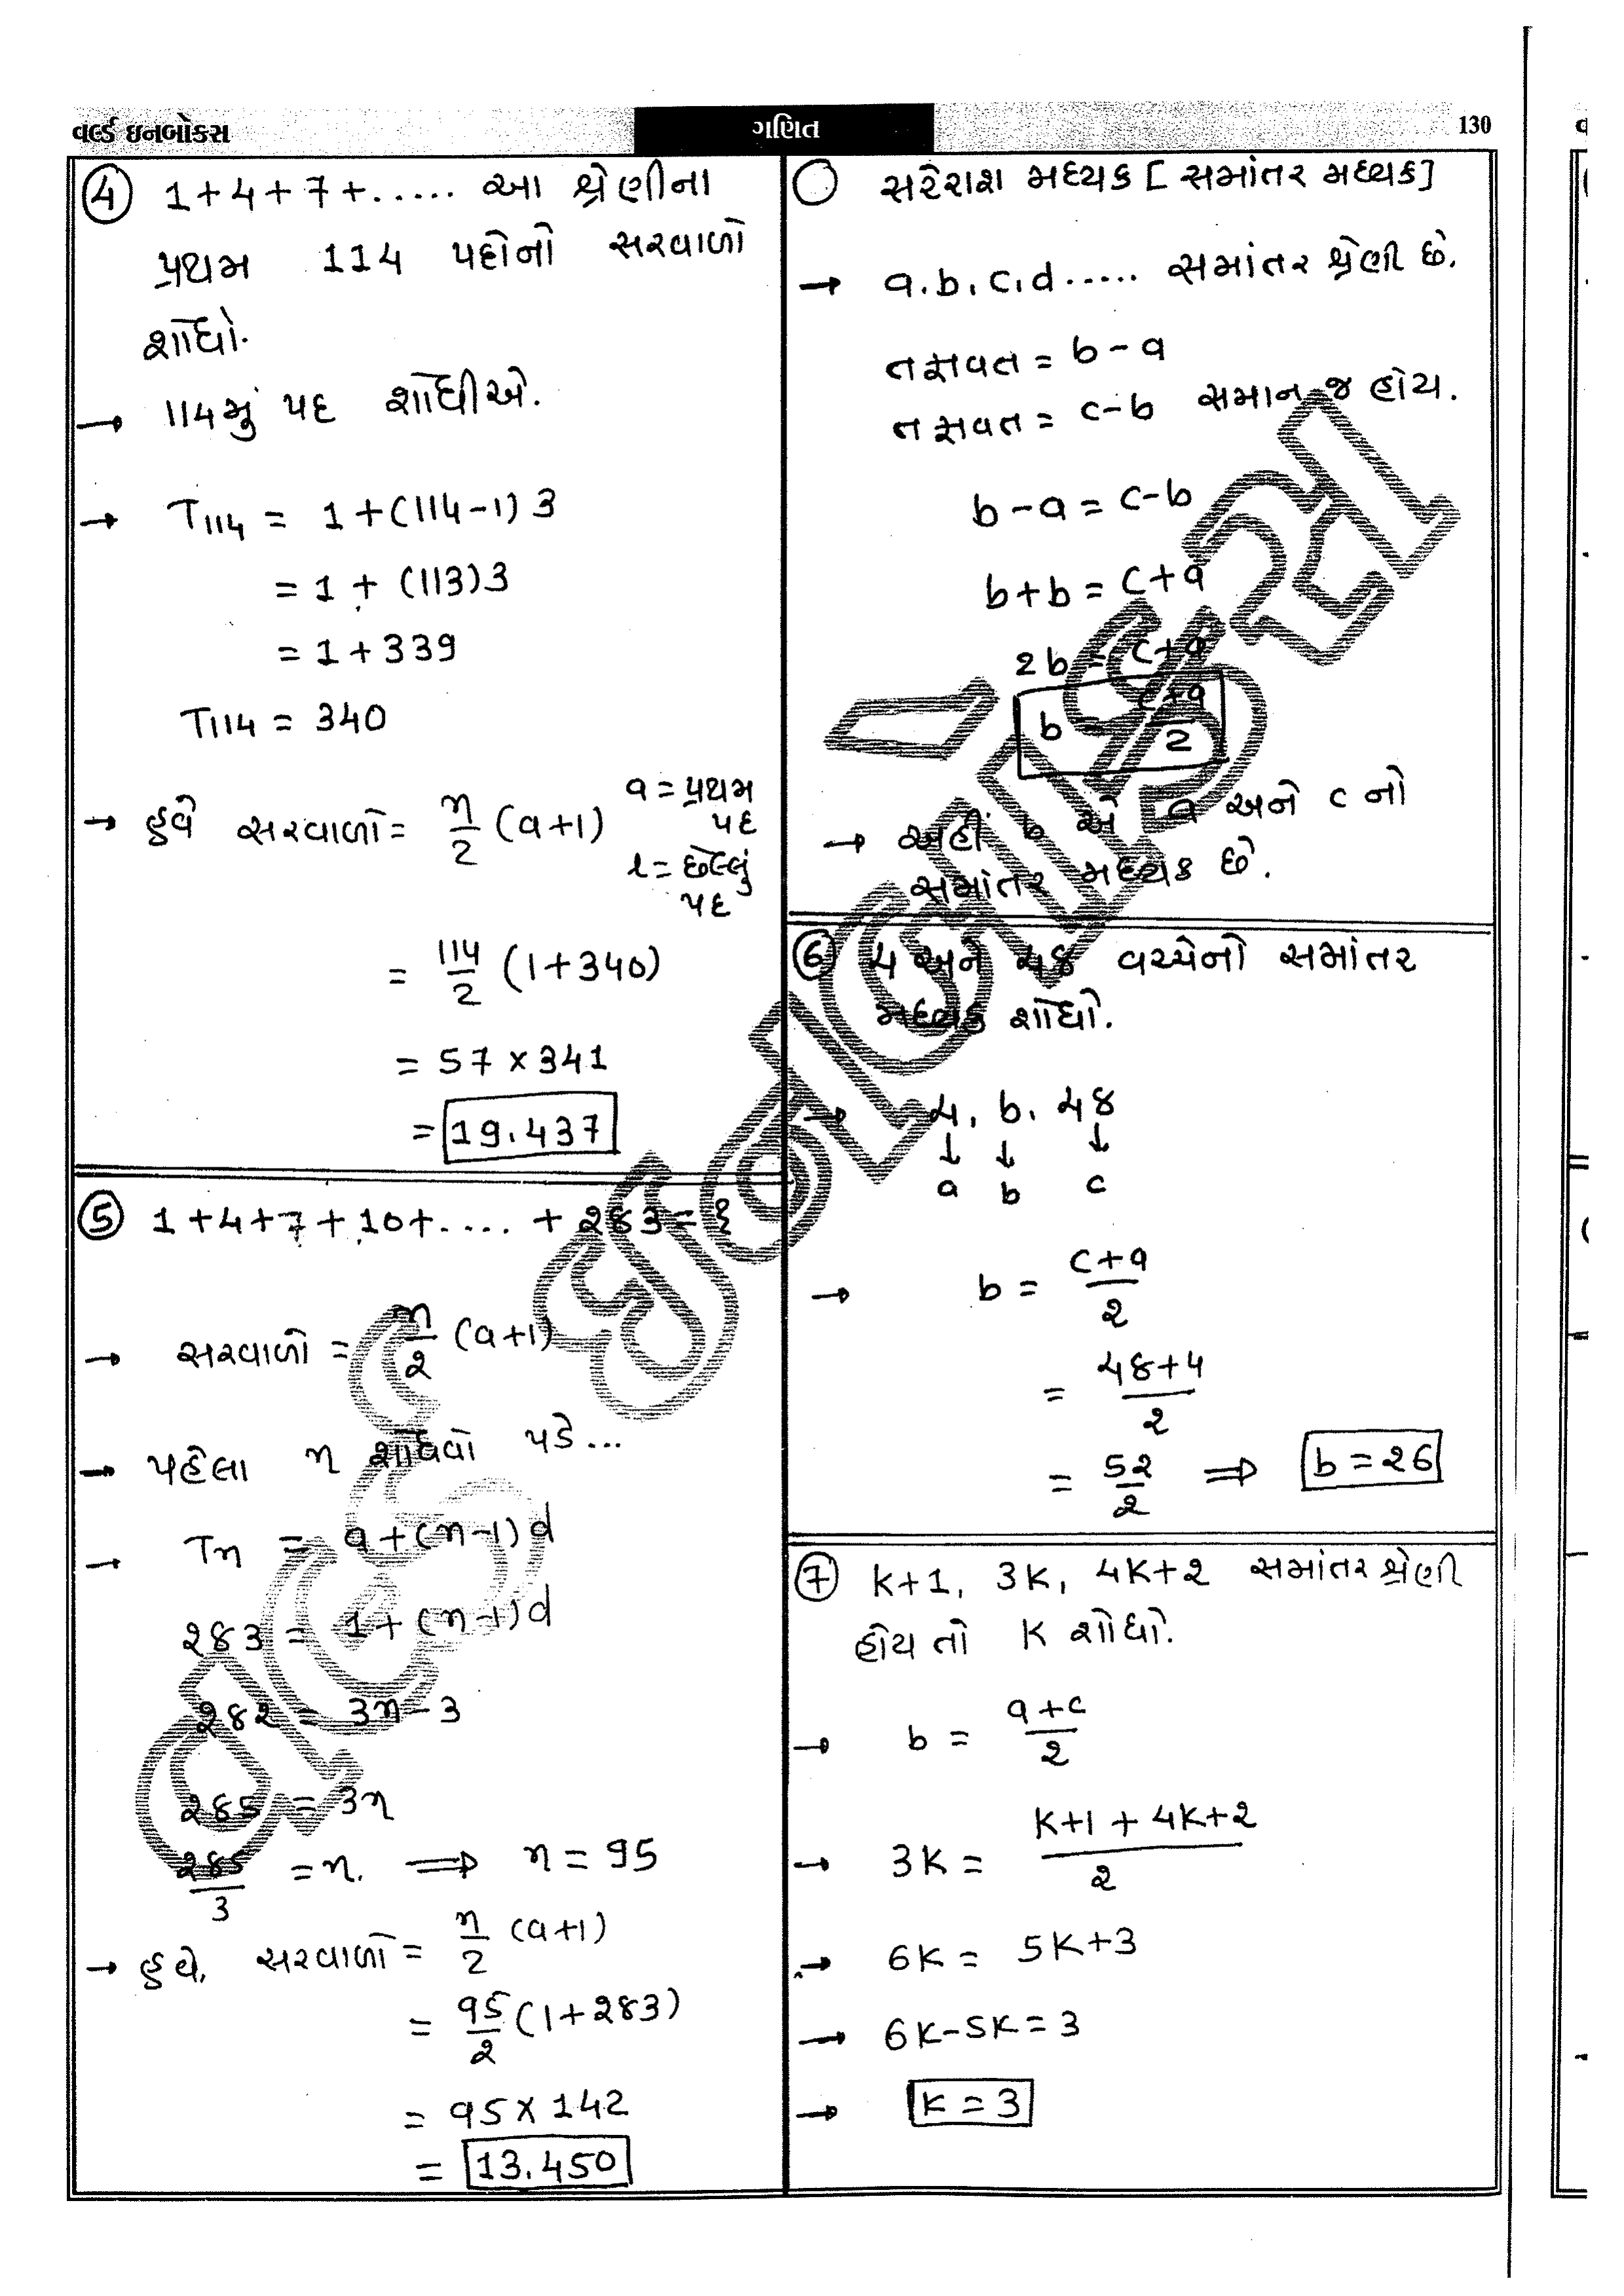 વર્લ્ડ ઇનબોક્સ
ગણિત
130
④ 1+4+7+..... આ શ્રેણીના
પ્રથમ 114 પદોનો સરવાળો
શોધો.
→ 114મું પદ શોધીએ.
→ T114 = 1+(114-1)3
= 1 + (113)3
= 1+339
T114 = 340
→ હવે સરવાળો = n/2 (a+l)
a = પ્રથમ
પદ
l = છેલ્લું
પદ
= 114/2 (1+340)
= 57 × 341
= 19,437
⑤ 1+4+7+10+..... + 2૪3 = ?
→ સરવાળો = n/2 (a+l)
→ પહેલા n શોધવો પડે...
→ Tn = a+(n-1)d
2૪3 = 1+(n-1)d
2૪2 = 3n-3
2૪5 = 3n
2૪5/3 = n. ⇒ n = 95
→ હવે, સરવાળો = n/2 (a+l)
= 95/2 (1+2૪3)
= 95 × 142
= 13.450
○ સરેરાશ મધ્યક [સમાંતર મધ્યક]
→ a, b, c, d ..... સમાંતર શ્રેણી છે.
તફાવત = b-a
તફાવત = c-b સમાન જ હોય.
b-a = c-b
b+b = c+a
2b = c+a
b = c+a/2
→ અહીં b એ a અને c નો
સમાંતર મધ્યક છે.
⑥ 4 અને 4૪ વચ્ચેનો સમાંતર
મધ્યક શોધો.
→ 4, b, 4૪
↓ ↓ ↓
a b c
→ b = c+a/2
= 4૪+4/2
= 52/2 ⇒ b = 26
⑦ K+1, 3K, 4K+2 સમાંતર શ્રેણી
હોય તો K શોધો.
→ b = a+c/2
→ 3K = K+1 + 4K+2/2
→ 6K = 5K+3
→ 6K-5K = 3
→ K = 3
વર્લ્ડ ઇનબોક્સ